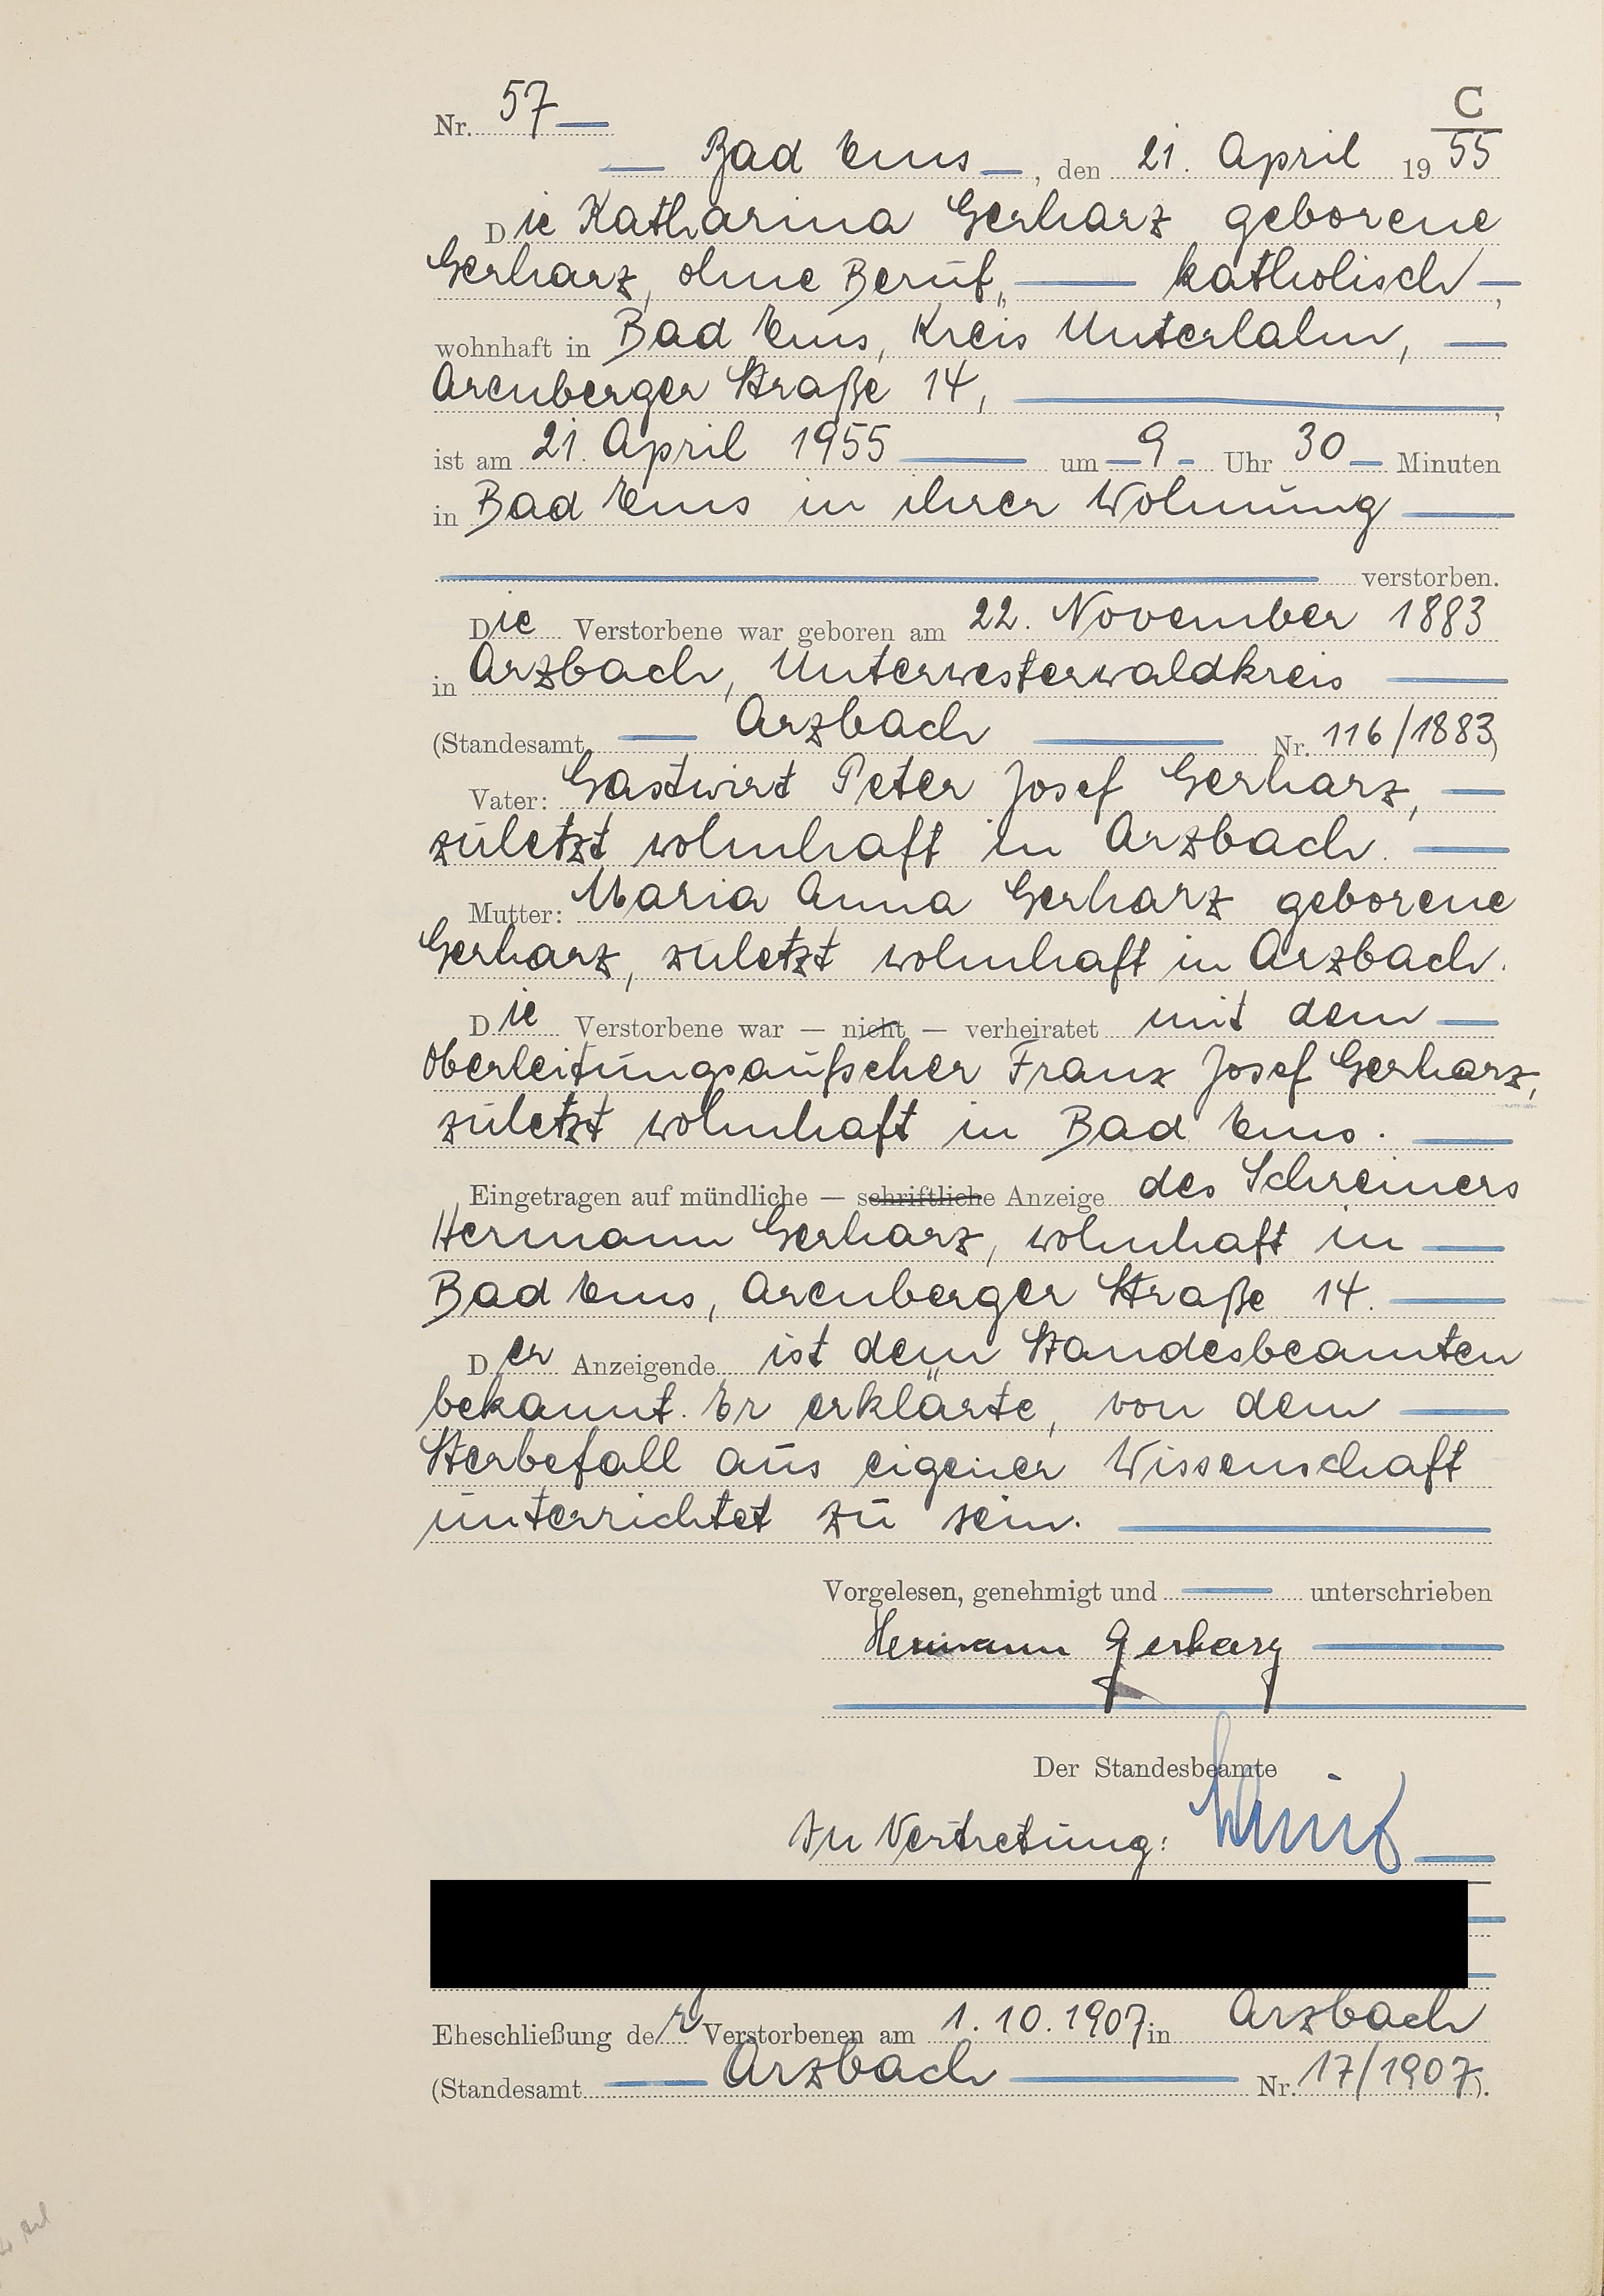 C
Nr. 57
Bad Ems, den 21. April 1955
Die Katharina Gerharz geborene
Gerharz, ohne Beruf, katholisch,
wohnhaft in Bad Ems, Kreis Unterlahn,
Arenberger Straße 14,
ist am 21. April 1955 um 9 Uhr 30 Minuten
in Bad Ems in ihrer Wohnung
verstorben.
Die Verstorbene war geboren am 22. November 1883
in Arzbach, Unterwesterwaldkreis
(Standesamt Arzbach Nr. 116/1883)
Vater: Gastwirt Peter Josef Gerharz,
zuletzt wohnhaft in Arzbach.
Mutter: Maria Anna Gerharz geborene
Gerharz, zuletzt wohnhaft in Arzbach.
Die Verstorbene war — nicht — verheiratet mit dem
Oberleitungsaufseher Franz Josef Gerharz,
zuletzt wohnhaft in Bad Ems.
Eingetragen auf mündliche — schriftliche Anzeige des Schreiners
Hermann Gerharz, wohnhaft in
Bad Ems, Arenberger Straße 14.
Der Anzeigende ist dem Standesbeamten
bekannt. Er erklärte, von dem
Sterbefall aus eigener Wissenschaft
unterrichtet zu sein.
Vorgelesen, genehmigt und unterschrieben
Hermann Gerharz
Der Standesbeamte
In Vertretung:
Eheschließung der Verstorbenen am 1.10.1907 in Arzbach
(Standesamt Arzbach Nr. 17/1907).